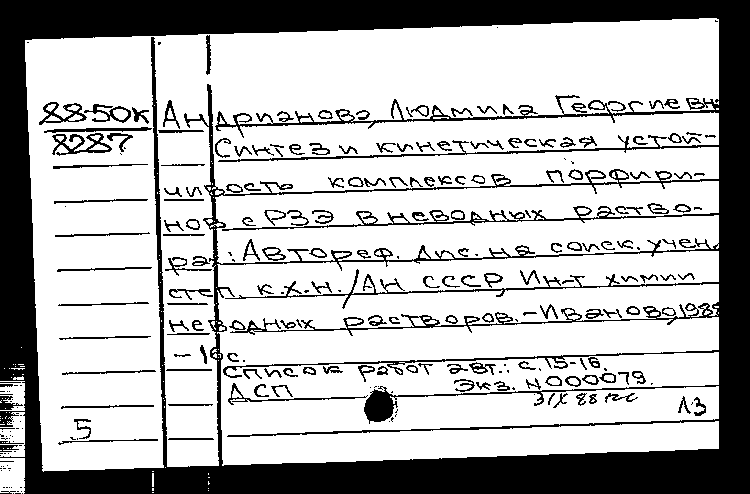 88-50к Андрианова, Людмила Георгиевна
8287 Синтез и кинетическая устой-
чивость комплексов порфири-
нов с РЗЭ в неводных раство-
рах: Автореф. дис. на соиск. учен.
степ. к.х.н. / АН СССР, Ин-т химии
неводных растворов. - Иваново, 1988
- 16 с.
Список работ авт.: с. 15-16.
ДСП Экз. N000079.
88
5 13